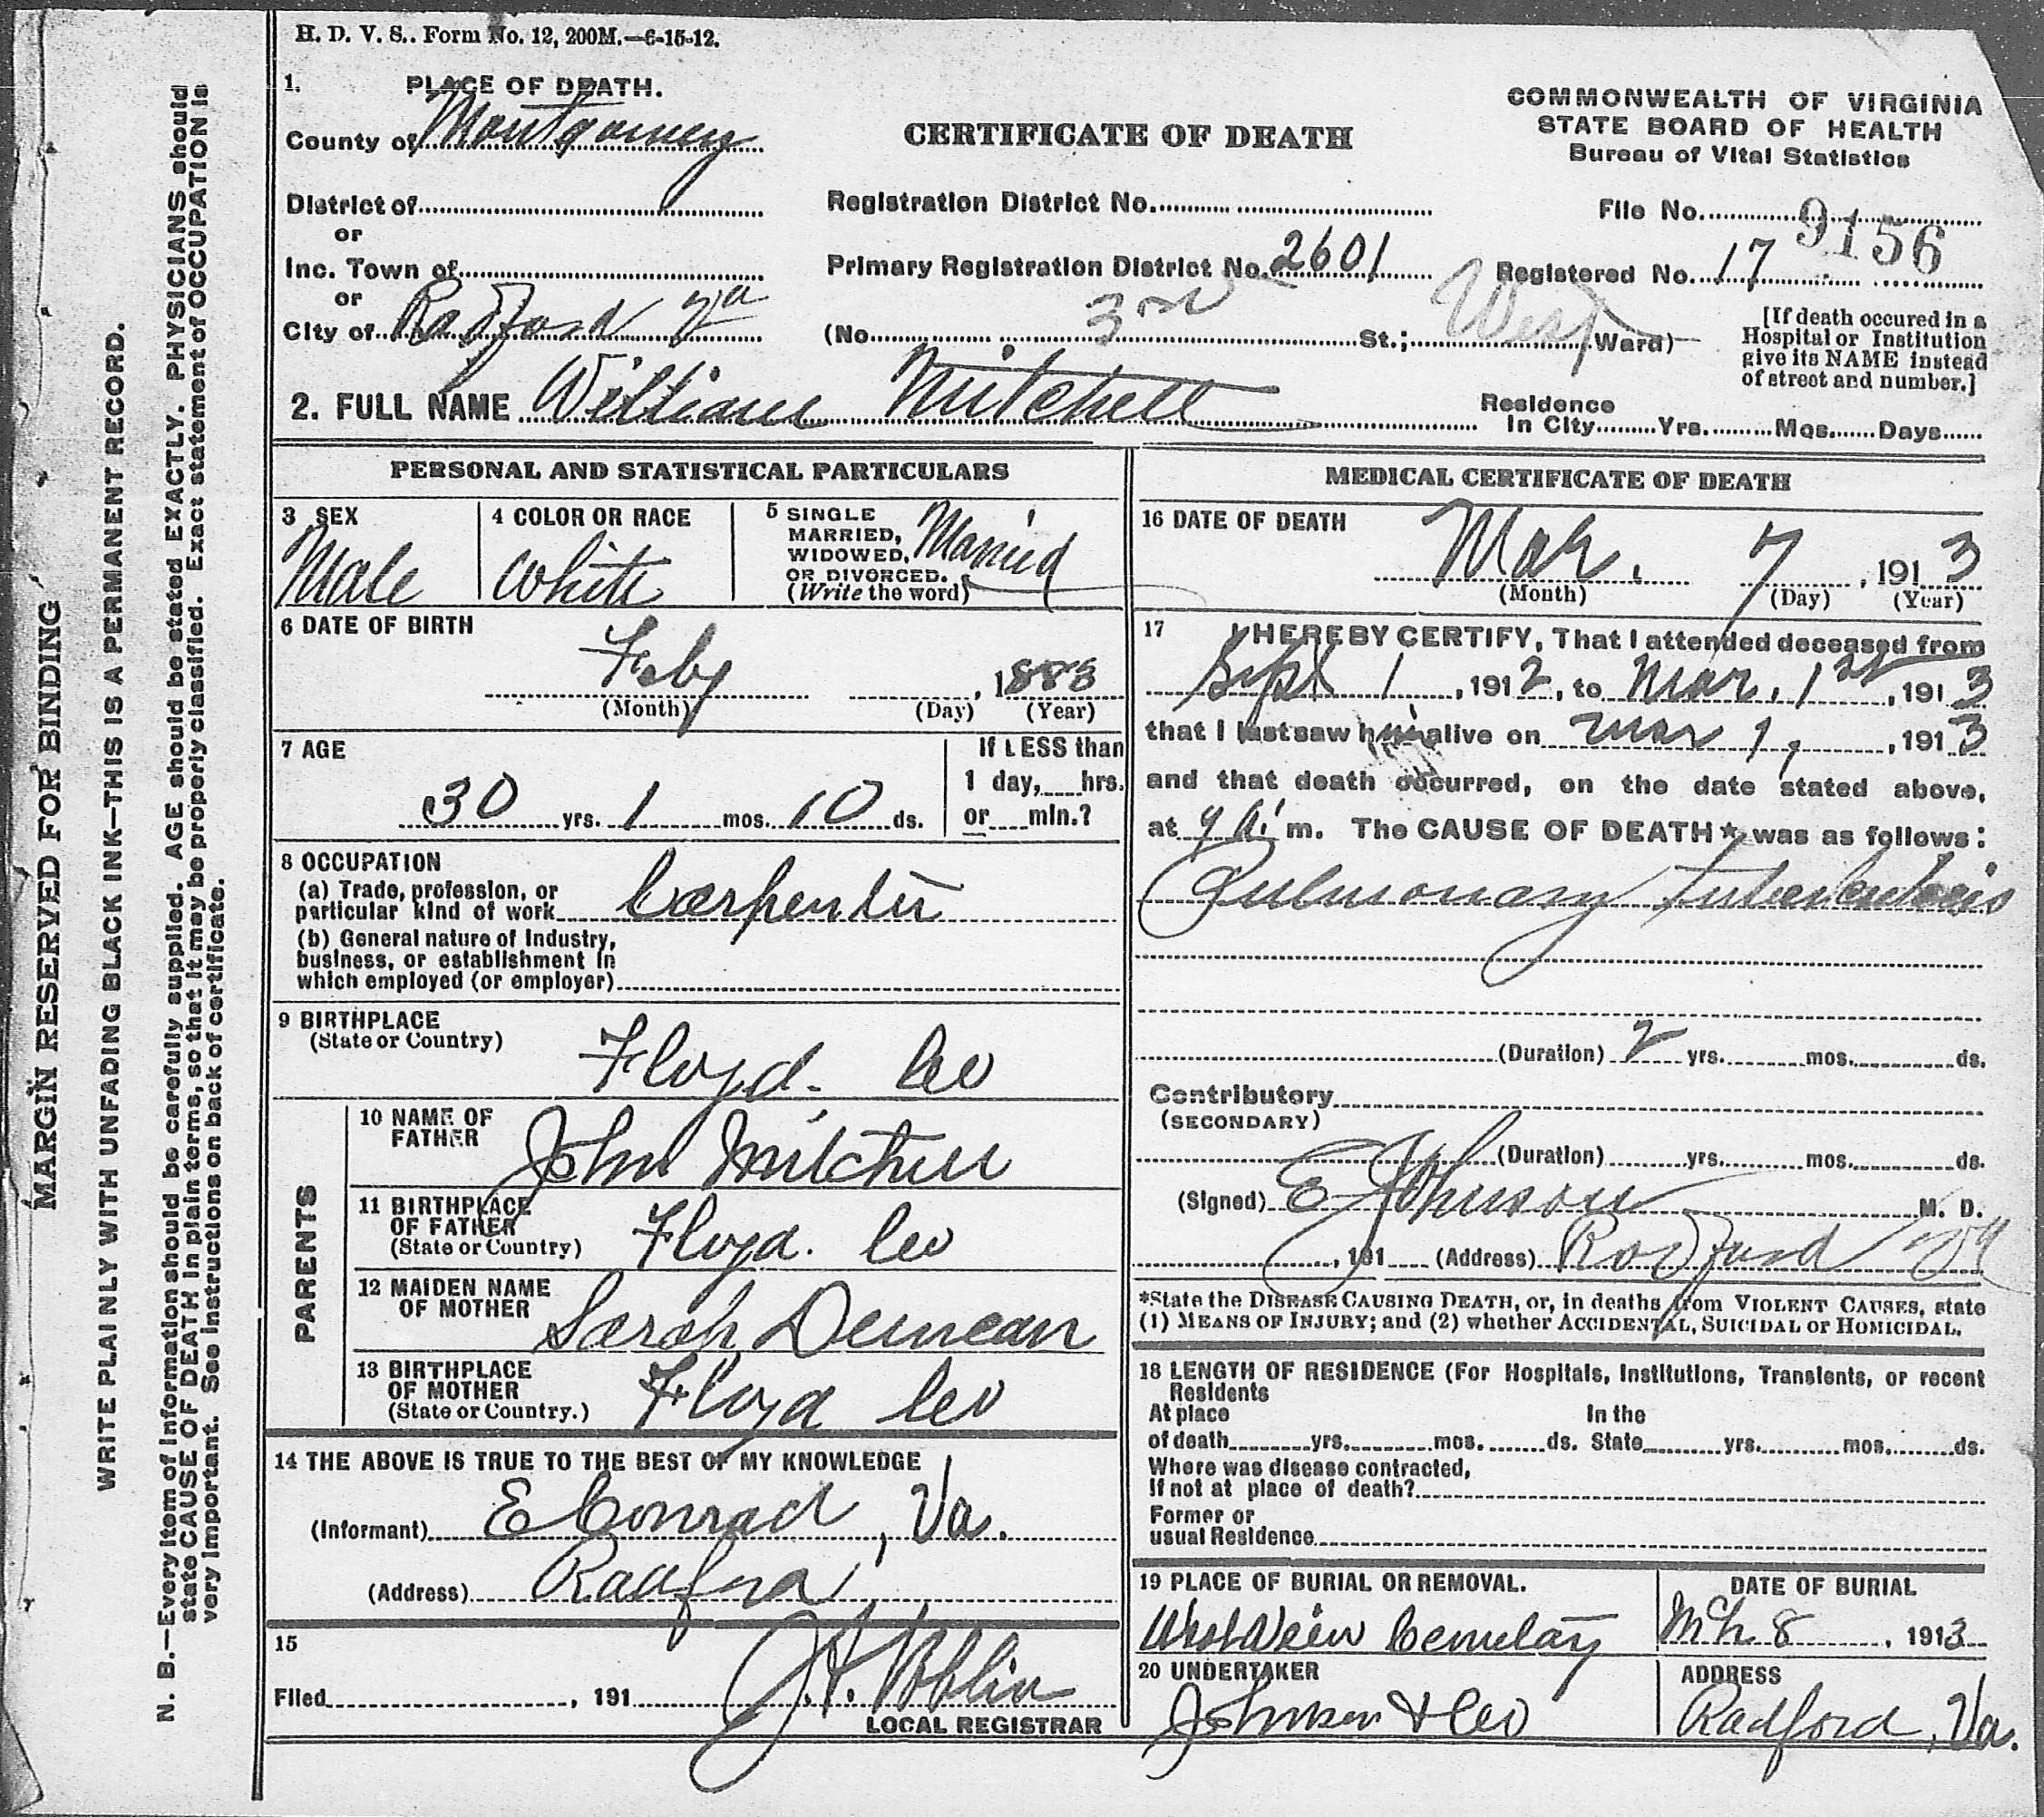 H. D. V. S.. Form No. 12, 200M.—6-15-12.
1. PLACE OF DEATH.
County of Montgomery
District of
or
Inc. Town of
or
City of Radford Va
CERTIFICATE OF DEATH
Registration District No.
Primary Registration District No. 2601
(No. 3rd St.; West Ward)
COMMONWEALTH OF VIRGINIA
STATE BOARD OF HEALTH
Bureau of Vital Statistics
File No. 9156
Registered No. 17
[If death occured in a
Hospital or Institution
give its NAME instead
of street and number.]
2. FULL NAME William Mitchell
Residence
In City Yrs. Mos. Days
PERSONAL AND STATISTICAL PARTICULARS
3 SEX
Male
4 COLOR OR RACE
White
5 SINGLE
MARRIED,
WIDOWED,
OR DIVORCED.
(Write the word)
Married
6 DATE OF BIRTH
Feby , 1883
(Month) (Day) (Year)
7 AGE
30 yrs. 1 mos. 10 ds.
If LESS than
1 day, hrs.
or min.?
8 OCCUPATION
(a) Trade, profession, or
particular kind of work Carpenter
(b) General nature of Industry,
business, or establishment in
which employed (or employer)
9 BIRTHPLACE
(State or Country)
Floyd. Co
PARENTS
10 NAME OF
FATHER
John Mitchell
11 BIRTHPLACE
OF FATHER
(State or Country)
Floyd. Co
12 MAIDEN NAME
OF MOTHER
Sarah Duncan
13 BIRTHPLACE
OF MOTHER
(State or Country.)
Floyd Co
14 THE ABOVE IS TRUE TO THE BEST OF MY KNOWLEDGE
(Informant) E Conrad, Va.
(Address) Radford
15
Filed , 191
LOCAL REGISTRAR
MEDICAL CERTIFICATE OF DEATH
16 DATE OF DEATH
Mar. 7 , 1913
(Month) (Day) (Year)
17 I HEREBY CERTIFY, That I attended deceased from
Sept 1 , 1912, to Mar. 1st, 1913
that I last saw him alive on Mar 1, , 1913
and that death occurred, on the date stated above,
at 9 a. m. The CAUSE OF DEATH* was as follows:
Pulmonary tuberculosis
(Duration) 2 yrs. mos. ds.
Contributory
(SECONDARY)
(Duration) yrs. mos. ds.
(Signed) E Johnson M. D.
, 191 (Address) Radford Va
*State the DISEASE CAUSING DEATH, or, in deaths from VIOLENT CAUSES, state
(1) MEANS OF INJURY; and (2) whether ACCIDENTAL, SUICIDAL or HOMICIDAL.
18 LENGTH OF RESIDENCE (For Hospitals, Institutions, Transients, or recent
Residents
At place In the
of death yrs. mos. ds. State yrs. mos. ds.
Where was disease contracted,
If not at place of death?
Former or
usual Residence
19 PLACE OF BURIAL OR REMOVAL.
West View Cemetary
DATE OF BURIAL
Mch 8 , 1913
20 UNDERTAKER
Johnson & Co
ADDRESS
Radford, Va.
MARGIN RESERVED FOR BINDING
WRITE PLAINLY WITH UNFADING BLACK INK—THIS IS A PERMANENT RECORD.
N. B.—Every item of information should be carefully supplied. AGE should be stated EXACTLY. PHYSICIANS should
state CAUSE OF DEATH in plain terms, so that it may be properly classified. Exact statement of OCCUPATION is
very important. See instructions on back of certificate.